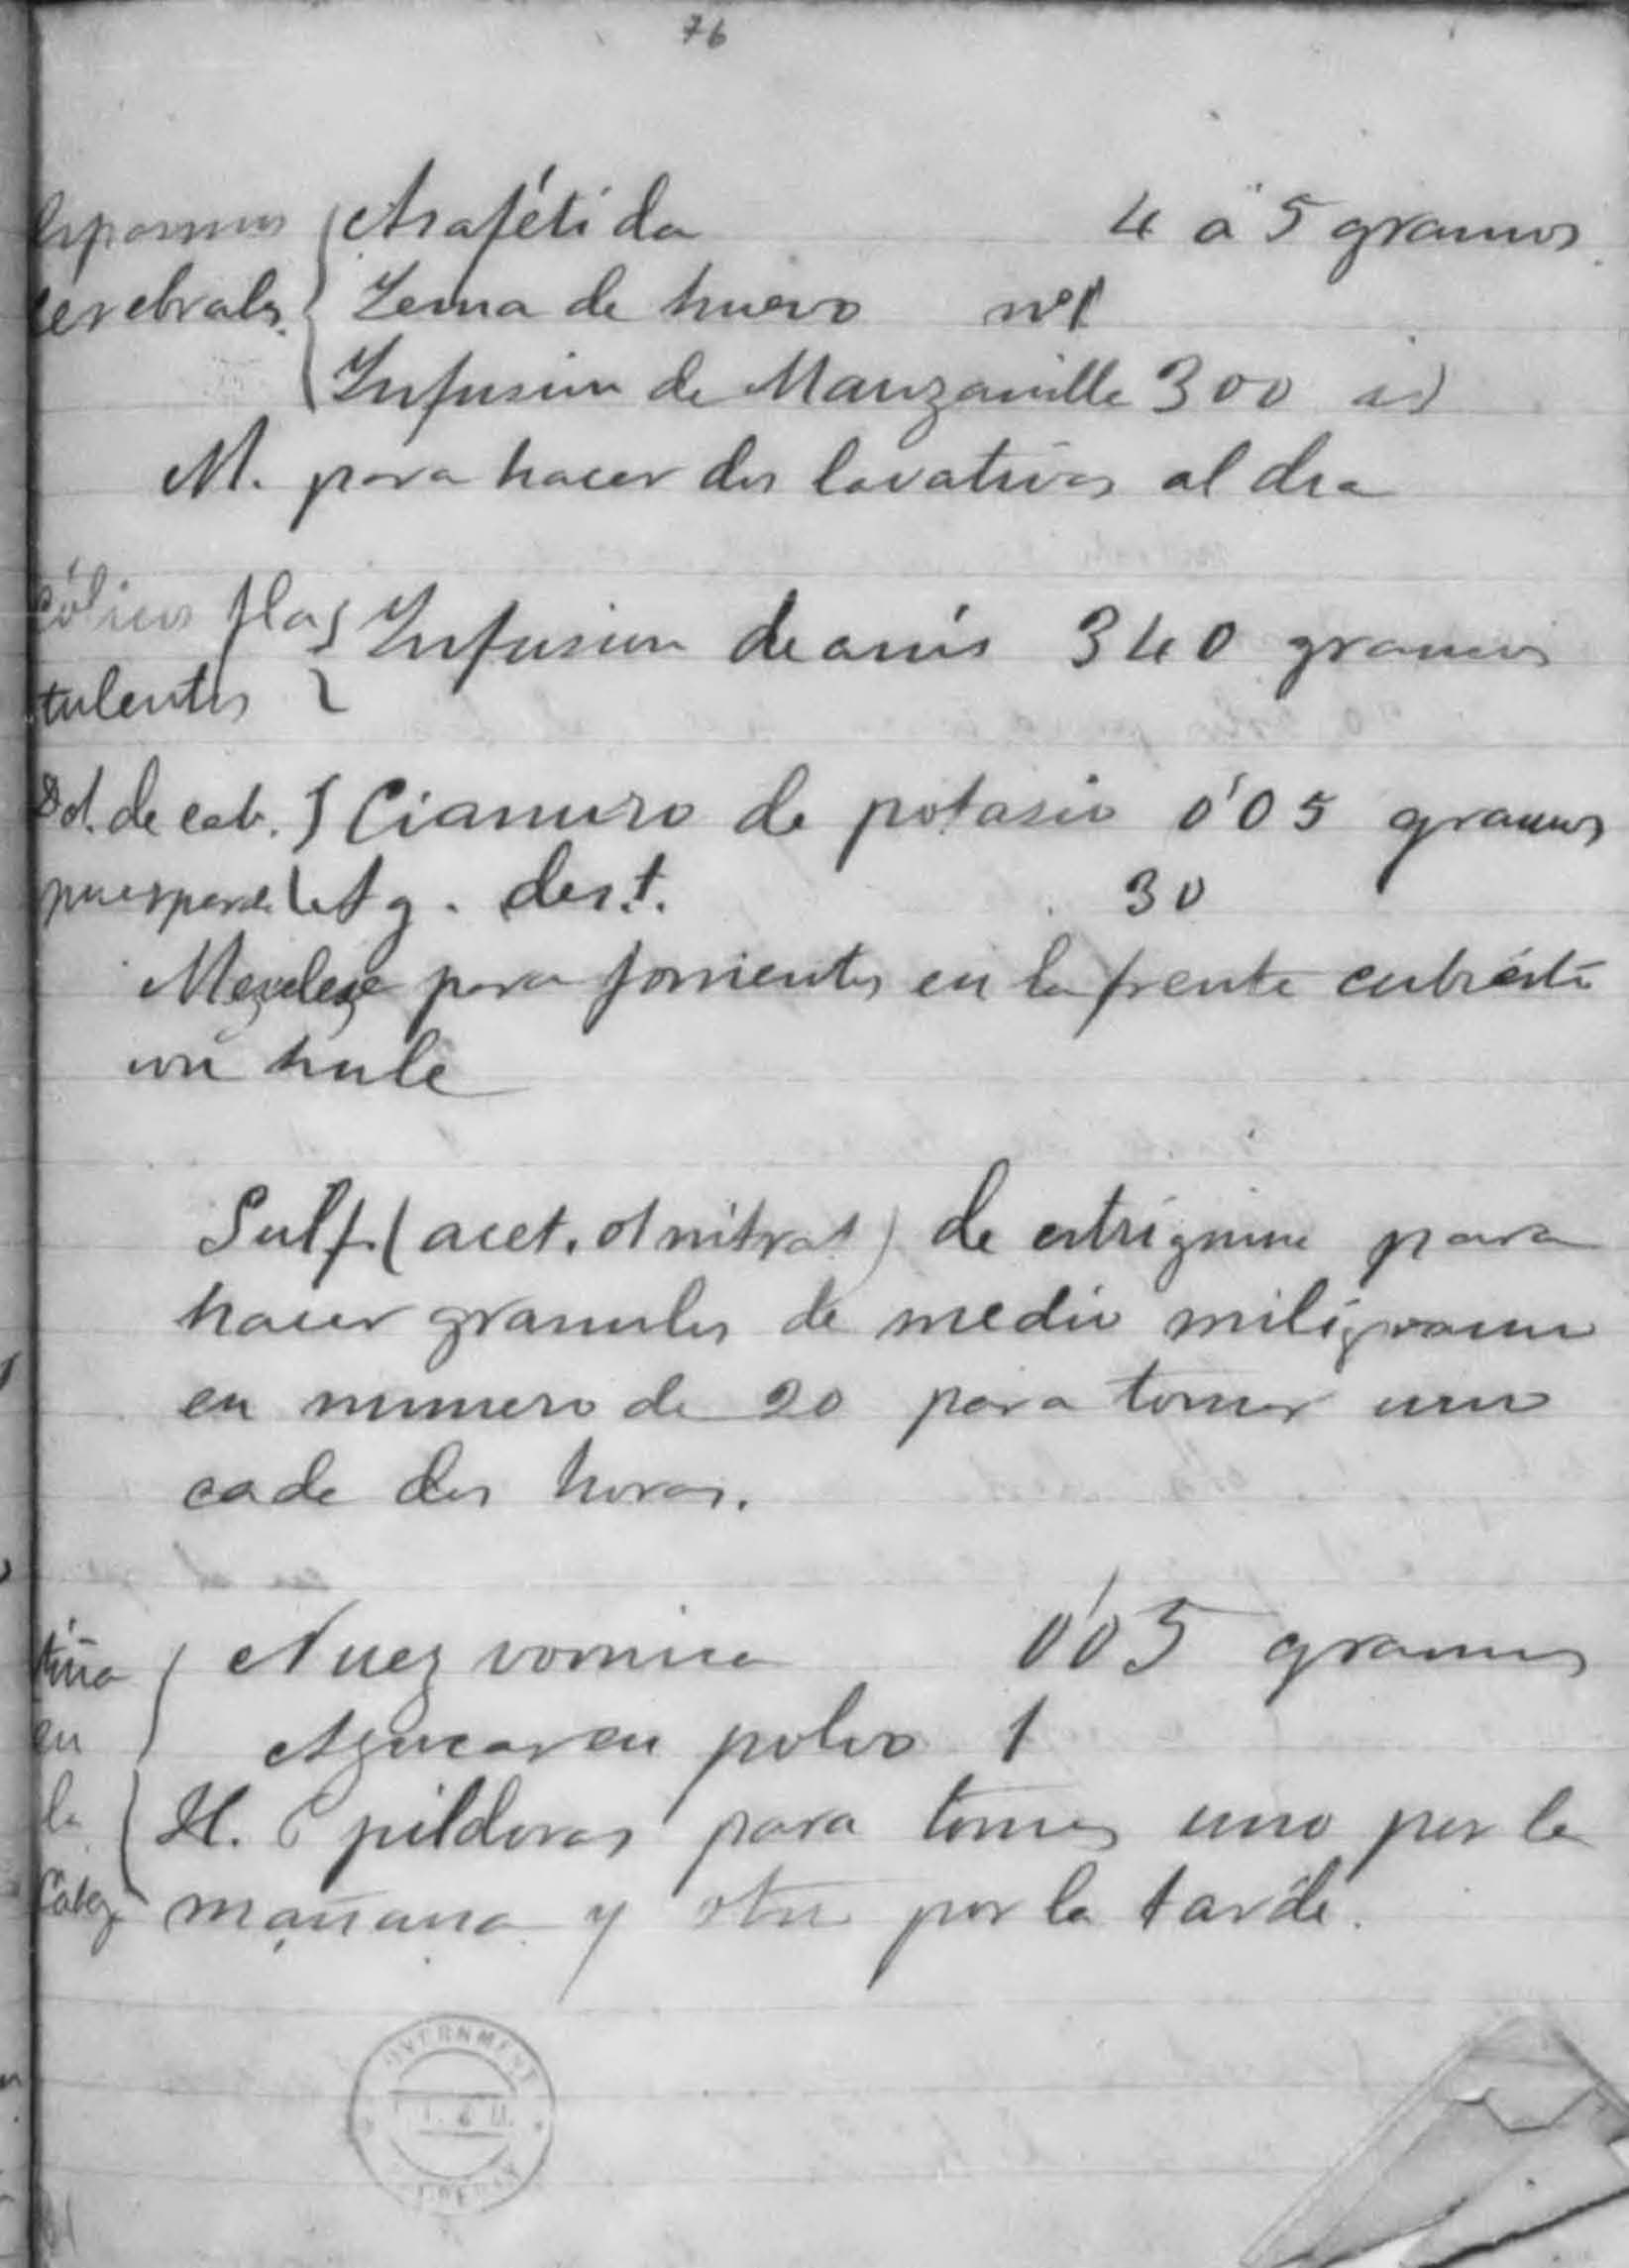 76
Espasmos { Asafétida 4 a 5 gramos
cerebrales. Yema de huevo nº 1
Infusion de Manzanilla 300 id
M. para hacer dos lavativas al dia
Cólicos fla { Infusion de anís 340 gramos
tulentos
Dol. de cab. { Cianuro de potasio 0'05 gramos
puerperal Ag. dest. 30
Mezclese para fomentos en la frente cubierta
con hule
Sulf. (acet. ol nitrat) de estrignina para
hacer granulos de medio miligramo
en numero de 20 para tomar uno
cada dos horas.
tiña { Nuez vomica 0'05 gramos
en Azucar en polvo 1
la H. 6 pildoras para tomar uno por la
Cabez mañana y otra por la tarde.
GOVERNMENT